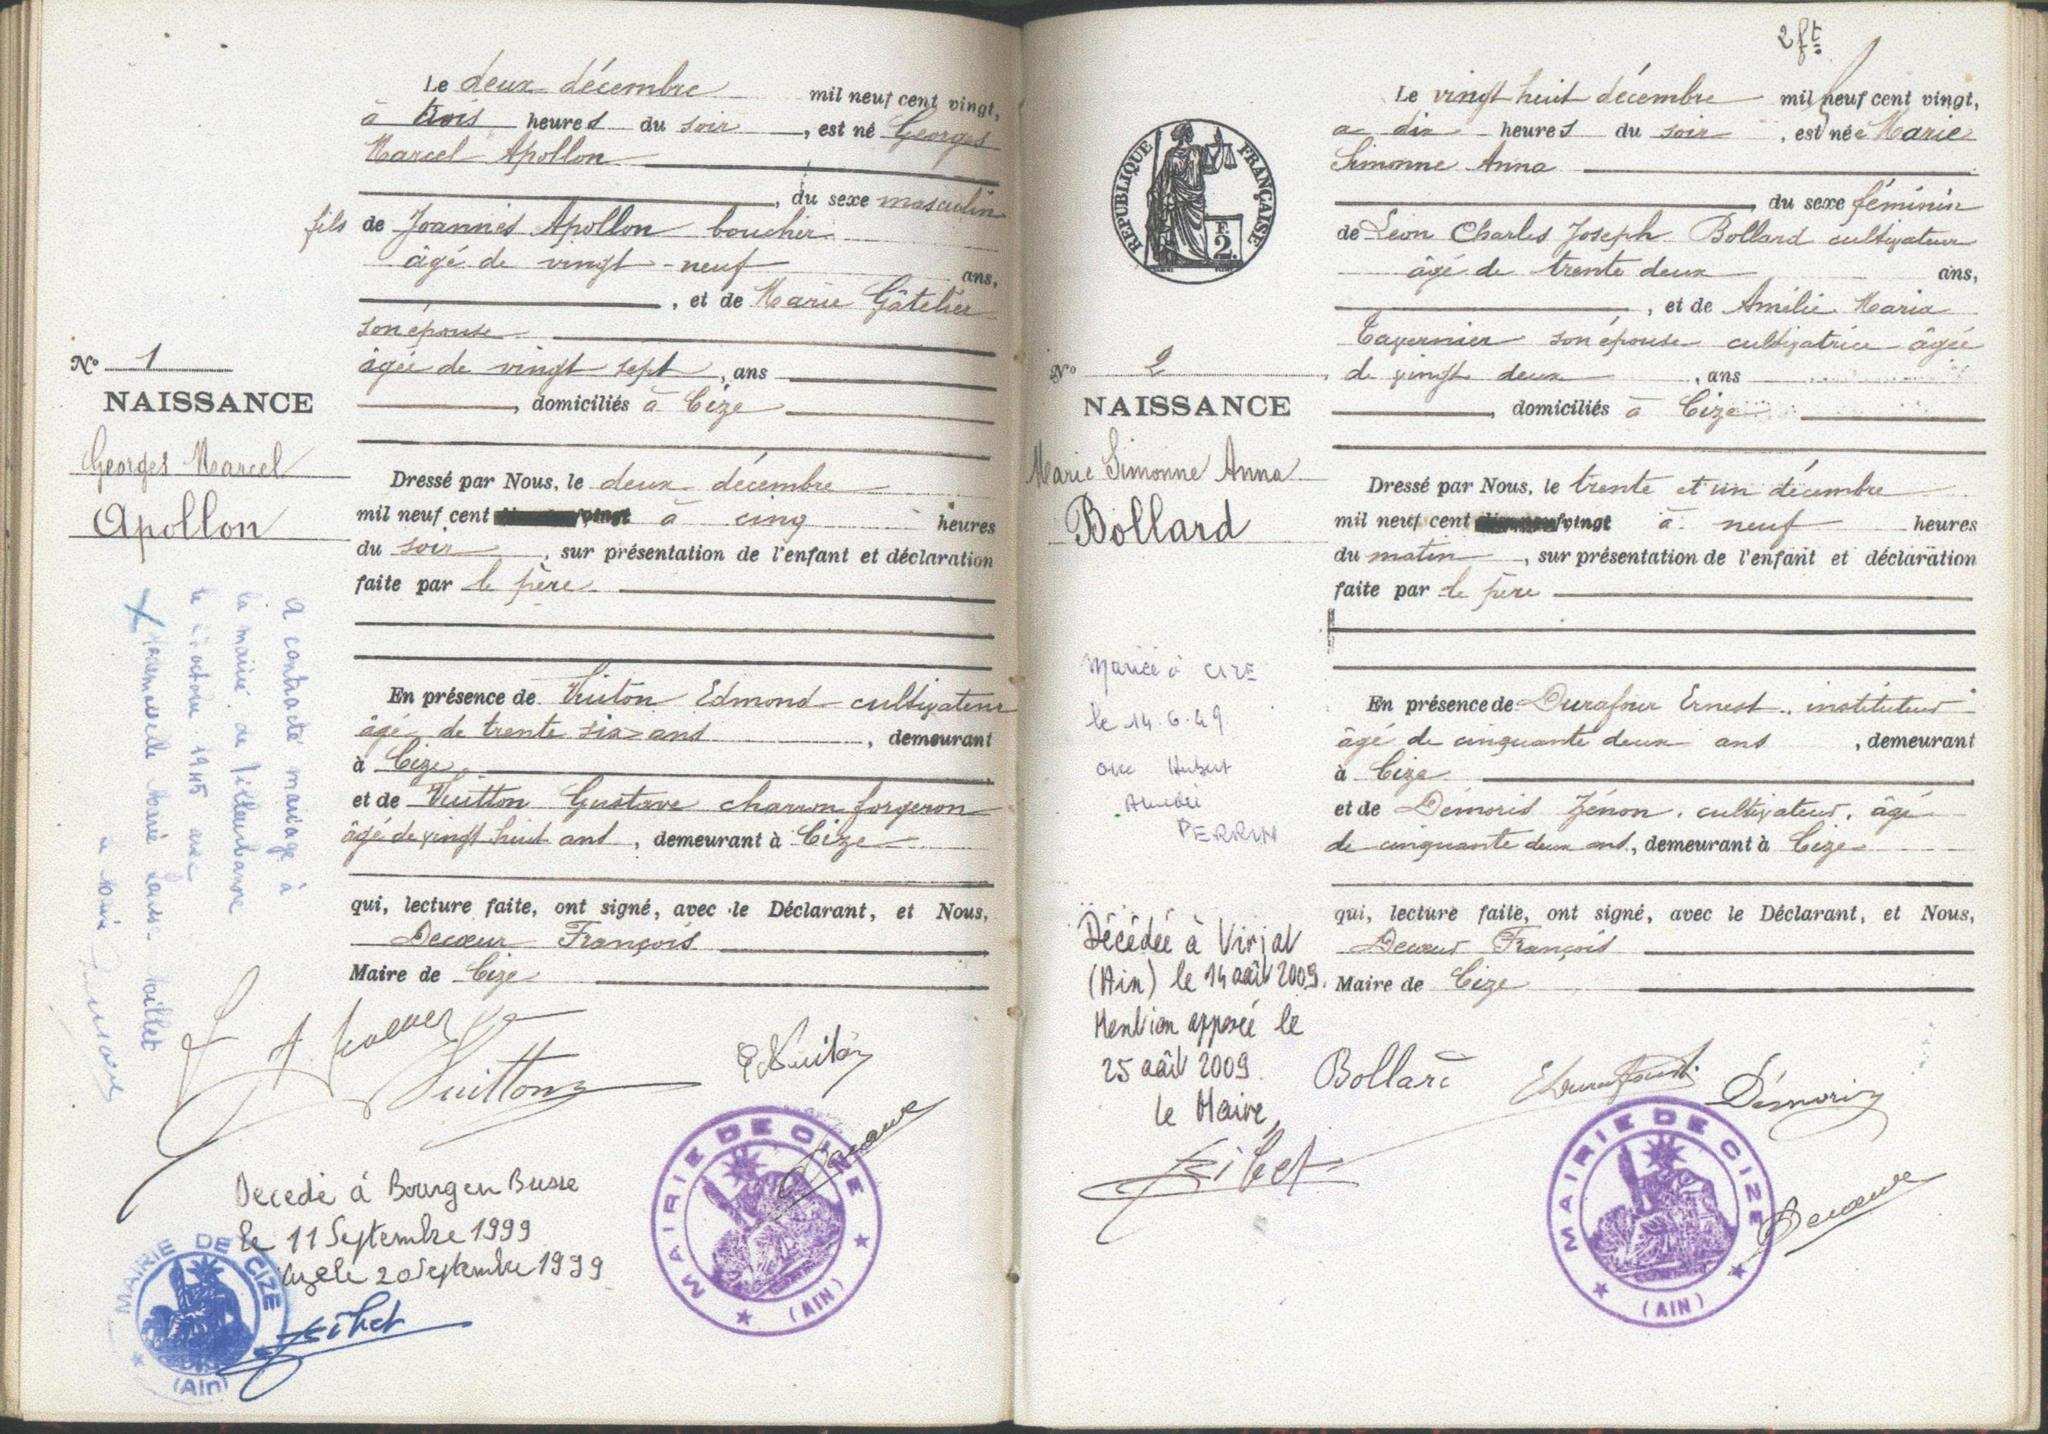 Le deux décembre mil neuf cent vingt,
à trois heures du soir, est né Georges
Marcel Apollon
, du sexe masculin
fils de Joannès Apollon boucher
âgé de vingt-neuf ans,
, et de Marie Gâtelier
son épouse
âgée de vingt sept, ans
, domiciliés à Cize
N° 1
NAISSANCE
Georges Marcel
Apollon
Dressé par Nous, le deux décembre
mil neuf cent vingt à cinq heures
du soir, sur présentation de l'enfant et déclaration
faite par le père
En présence de Vuiton Edmond cultivateur
âgé de trente six ans, demeurant
à Cize
et de Vuitton Gustave charron forgeron
âgé de vingt huit ans, demeurant à Cize
qui, lecture faite, ont signé, avec le Déclarant, et Nous,
Decœur François
Maire de Cize
A contracté mariage à
la mairie de Villeurbanne
le octobre 1945 avec
Marie Millet
Vuitton
Decœur
MAIRIE DE CIZE
(AIN)
Decedé à Bourg en Bresse
le 11 Septembre 1999
Cize le 20 Septembre 1999
MAIRIE DE CIZE
(Ain)
2 ft
REPUBLIQUE FRANÇAISE
F.
2.
Le vingt huit décembre mil neuf cent vingt,
a dix heures du soir, est née Marie
Simonne Anna
, du sexe féminin
de Léon Charles Joseph Bollard cultivateur
âgé de trente deux ans,
, et de Amélie Maria
Tavernier son épouse cultivatrice âgée
de vingt deux, ans
, domiciliés à Cize
N° 2
NAISSANCE
Marie Simonne Anna
Bollard
Dressé par Nous, le trente et un décembre
mil neuf cent vingt à neuf heures
du matin, sur présentation de l'enfant et déclaration
faite par le père
Mariée à CIZE
le 14.6.49
avec Hubert
Amédée
PERRIN
En présence de Durafour Ernest, instituteur
âgé de cinquante deux ans, demeurant
à Cize
et de Démoris Zénon, cultivateur, âgé
de cinquante deux ans, demeurant à Cize
qui, lecture faite, ont signé, avec le Déclarant, et Nous,
Decœur François
Maire de Cize
Décédée à Virjat
(Ain) le 14 août 2009.
Mention apposée le
25 août 2009.
le Maire,
Bollard
Démoris
Decœur
MAIRIE DE CIZE
(AIN)